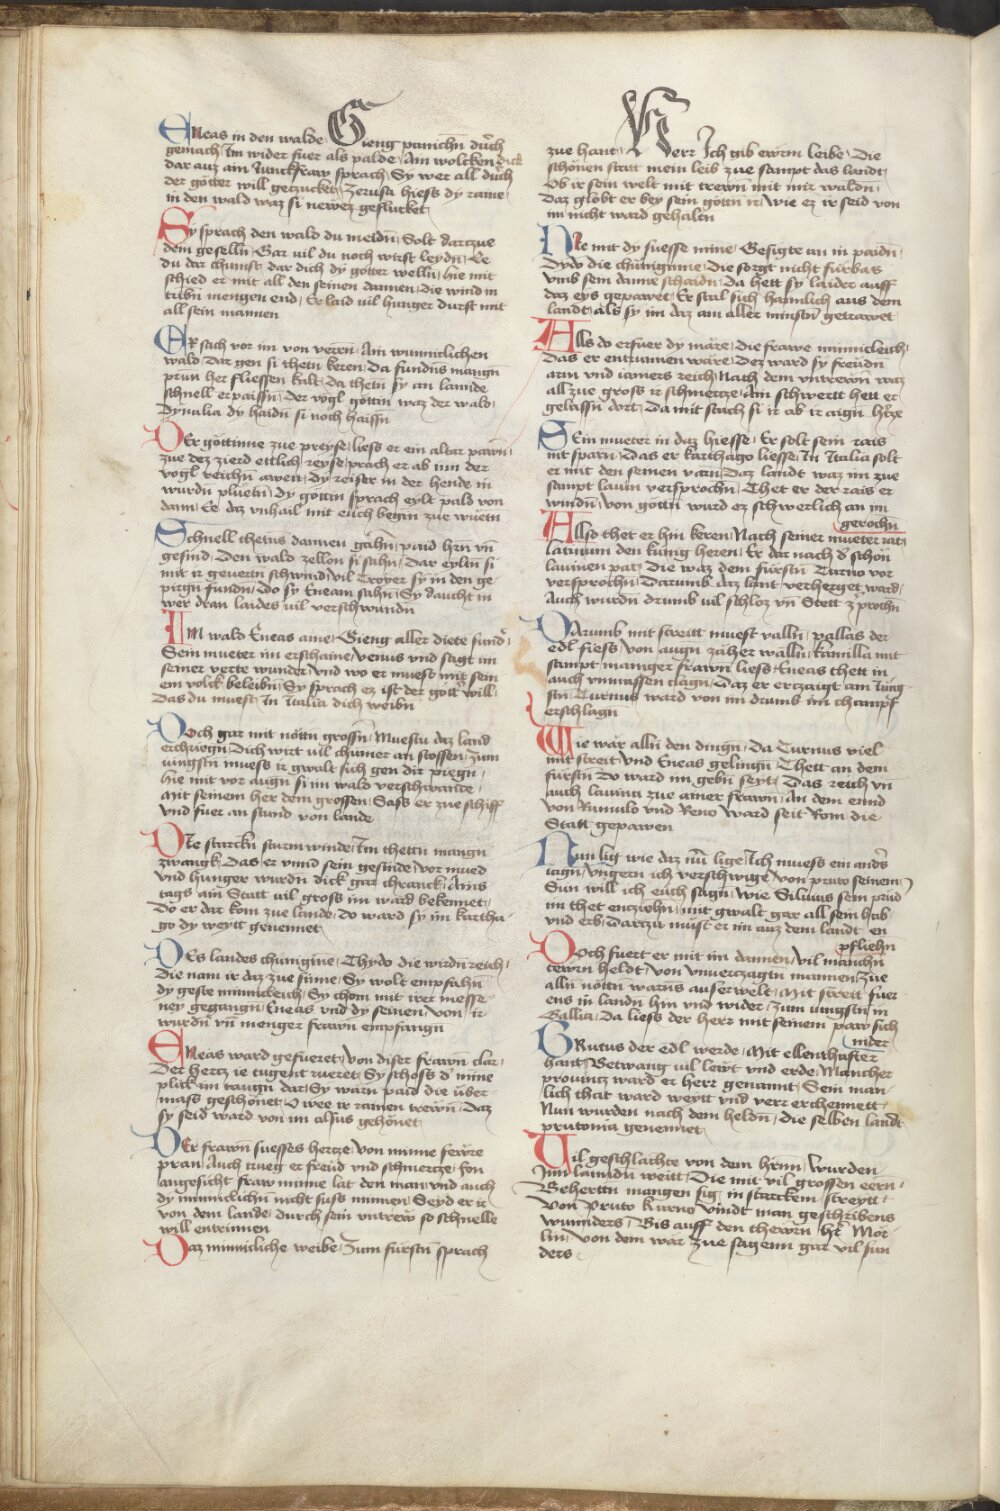 ENeas in den walde Gieng pranichn̄ durch
gemach Im wider fuer als palde Am wolcken dick
dar auz ain Junckfraw sprach Sy wer all durch
der götter will getzucket Zerusa hiess dy rame
in den wald waz si newez geflucket
Sy sprach den wald du meidn̄ Solt dartzue
dem geselln̄ Gar vil du noch wirst leydn̄ Ee
du dar chumst dar dich dy götter welln̄ hie mit
schied er mit all den seinen dannen Die wind in
tribn̄ mengen end Er laid vil hunger durst mit
all sein mannen
ER sach vor im von verrn Ain wunniclichen
wald Dar gen si thetn keren Da fundns mangn̄
prun her fliessen kalt Da thetn sy an lannde
schnell erpaissn̄ Der vogl göttin waz der wald
Dynalia dy haidn̄ si noch haissn̄
DEr göttinne zue preyse liess er ein altar pawn̄
zue dez zierd ettlich reyse prach er ab inn der
vogl reichn̄ awen dy reiser in der hende in
wurdn̄ pluetn̄ dy göttin sprach eylt pald von
dann Ee daz vnhail mit euch begin zue wuetn
Schnell theins dannen gahn̄ paid hrn̄ vn̄
gesind Den wald zellon si sahn̄ Dar eyltn si
mit ir gevertn schwind vil Troyer sy in den ge
pirgn̄ fundn̄ Do sy Eneam sahn̄ Sy daucht in
wer dran laides vil verschwundn̄
IM wald Eneas aine Gieng aller diete sund̄
Sein mueter im erschaine venus vnd sagt im
seiner verte wunder vnd wo er muest mit sein
em volck beleibn̄ Sy sprach ez ist der gött will
Das du muest In Italia dich weibn̄
DOch gar mit nöttn grossn̄ Muestu daz land
erchriegn̄ Dich wirt vil chumer an stossen Zum
iungstn muess ir gwalt sich gen dir piegn
hie mit vor augn̄ si im wald verschwante
Mit seinem her dem grossen Sass er zue schiff
vnd fuer an stund von lande
DIe starckn̄ sturm winde Im thettn mangn̄
zwangk Das er vnnd sein gesinde vor mued
vnd hunger wurdn̄ dick gar chranck Ains
tags ain Statt vil gross im ward bekennet
Do er dar kom zue lande do ward sy im kartha-
go dy weytt genennet
DEs landes chunigine Thydo die wirdn̄ reich
Die nam ir daz zue sinne Sy wolt empfahn̄
dy geste minnickleich Sy chom mit irer messe-
ney gegangn̄ Eneas vnd dy seinen von ir
wurdn̄ vn̄ menger frawn empfangn̄
ENeas ward gefueret von diser frawn clar
Der hertz ie tugent rueret Sy schoss d' mine
plick im taugn̄ dar Sy warn paid die über
mass geschönet O wee ir ramen trewn̄ Daz
sy seid ward von im alsus gehönet
DEr frawn̄ suesses hertze von minne fewre
pran Auch trueg er freud vnd schmertze son
angesicht fraw minne lat den man vnd auch
dy minniclichn̄ nicht suss nimen Seyd er ir
von dem lande durch sein vntrew so schnelle
will entrinnen
Daz minniliche weibe Zum fürstn̄ sprach
zue hant Herr Ich gib ewrm leibe Die
schönen statt mein leib zue sampt das landt
Ob ir sein welt mit trewn̄ mit mir waldn̄
Daz globt er bey sein göttn ir wie ez ir seid von
im nicht ward gehaltn
ALs mit dy suesse mine Gesigte an in paidn̄
Dydo die chüniginne Die sorgt nicht fürbas
vmb sein danne schaidn̄ Da hett sy laider auff
daz eys gepawet Er stal sich haimlich aus dem
landt als sy im daz am aller minstn̄ getrawet
Alls do erfuer dy märe die frawe minnicleich
Das er entrunnen wäre Dez ward sy freudn̄
arm vnd iamers reich Nach dem vntrewn̄ waz
all zue gross ir schmertze Ain schwertt hett er
gelassn̄ dort Da mit stach si ir ab ir aign̄ htze
SEin mueter in daz hiesse Er solt sein rais
nit sparn Das er karthago liesse In Italia solt
er mit den seinen varn Daz landt waz im zue
sampt lauin versprochn̄ Thet er der rais er
windn̄ von göttn̄ wurd ez schwerlich an im
gerochn̄
Allso thet er hin keren Nach seiner mueter rat
Latinum den künig heren Er dar nach d' schön
lauinen pat Die waz dem fürstn̄ Turno vor
versprochn̄ Darumb daz lant verherget ward
Auch wurdn̄ drumb vil schloz vn̄ Stett z'prochn̄
DArumb mit streitt muest valln̄ pallas der
edl fiess von augn zäher walln̄ kamilla mit
sampt maniger frawn̄ liess Eneas thett in
auch vnmassen clagn̄ Daz er ertzaigt am Jung
stn Turnus ward von im drumb im champf
erschlagn̄
Wie wär alln̄ den dingn̄ Da Turnus viel
mit streit vnd Eneas gelingn̄ Thett an dem
fürstn̄ Do ward im gebn̄ seyt Das reich vn̄
auch lauina zue ainer frawn̄ An dem ennd
von Rumulo vnd Reno ward seit Rom die
Statt gepawen
Nun lig wie daz nū lige Ich muess ein ands̄
iagn̄ vngern ich verschwige von pruto seinem
Sun will ich euch sagn̄ wie Siluius sein prud
im thet entziehn̄ mit gwalt gar all sein hab
vnd erb Dartzu müst er im auz dem landt en
pfliehn
DOch fuert er mit im dannen vil manichn̄
tewrn heldt von vnuertzagtn mannen Zue
alln nöttn warns auserwelt Mit streit fuer
ens in landn̄ hin vnd wider Zum iungstn̄ in
Gallia Da liess der herr mit seinem paw sich
nider
BRutus der edl werde Mit ellenthafter
hant Betwang vil lewt vnd erde Mancher
prouintz ward er herr genannt Sein man-
lich that ward weytt vnd verr erchennett
Nun wurden nach dem heldn̄ die selben landt
prutonia genennet
Vil geschlächte von dem hrnn̄ Wurden
Inn landn̄ weitt Die mit vil grossen eern
Behertn mangen sig in starckem streytt
Von Pruto kurno vindt man geschribens
wunnders Bis auff den thewrn̄ hr̄ Mor
lin von dem wär zue sagenn gar vil sun
ders